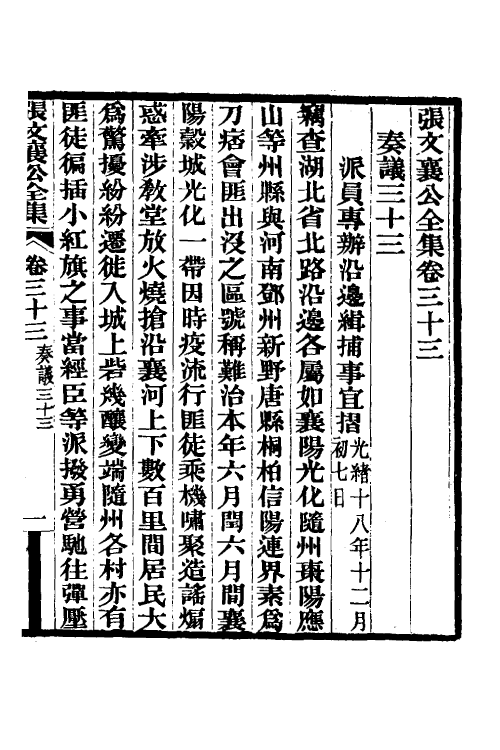 張文襄公全集卷三十三
奏議三十三
派員專辦沿邊緝捕事宜摺光緒十八年十二月初七日
竊查湖北省北路沿邊各屬如襄陽光化隨州棗陽應
山等州縣與河南鄧州新野唐縣桐柏信陽連界素爲
刀痞會匪出沒之區號稱難治本年六月閏六月間襄
陽穀城光化一帶因時疫流行匪徒乘機嘯聚造謠煽
惑牽涉敎堂放火燒搶沿襄河上下數百里間居民大
爲驚擾紛紛遷徙入城上砦幾釀變端隨州各村亦有
匪徒徧插小紅旗之事當經臣等派撥勇營馳往彈壓
張文襄公全集 卷三十三 奏議三十三 一